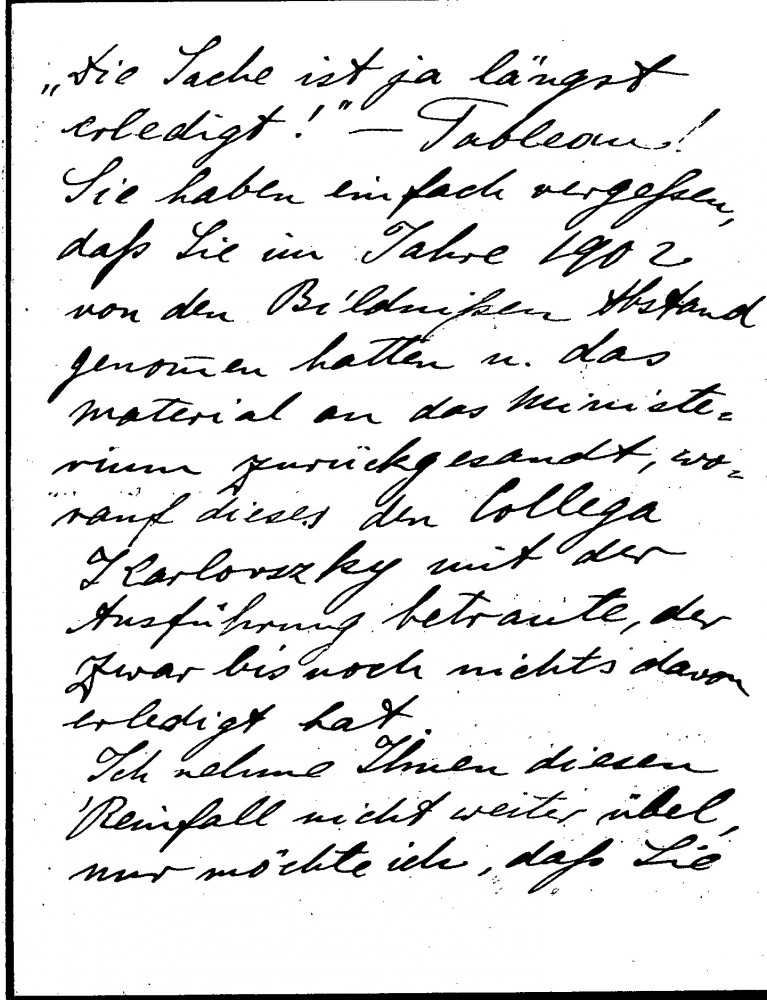 „Die Sache ist ja längst
erledigt!" — Tableau!
Sie haben einfach vergeßen,
daß Sie im Jahre 1902
von den Bildnißen Abstand
genom̄en hatten u. das
Material an das Ministe=
rium zurückgesandt, wo=
rauf dieses den Collega
Karlovszky mit der
Ausführung betraute, der
zwar bis noch nichts davon
erledigt hat.
Ich nehme Ihnen diesen
Reinfall nicht weiter übel,
nur möchte ich, daß Sie